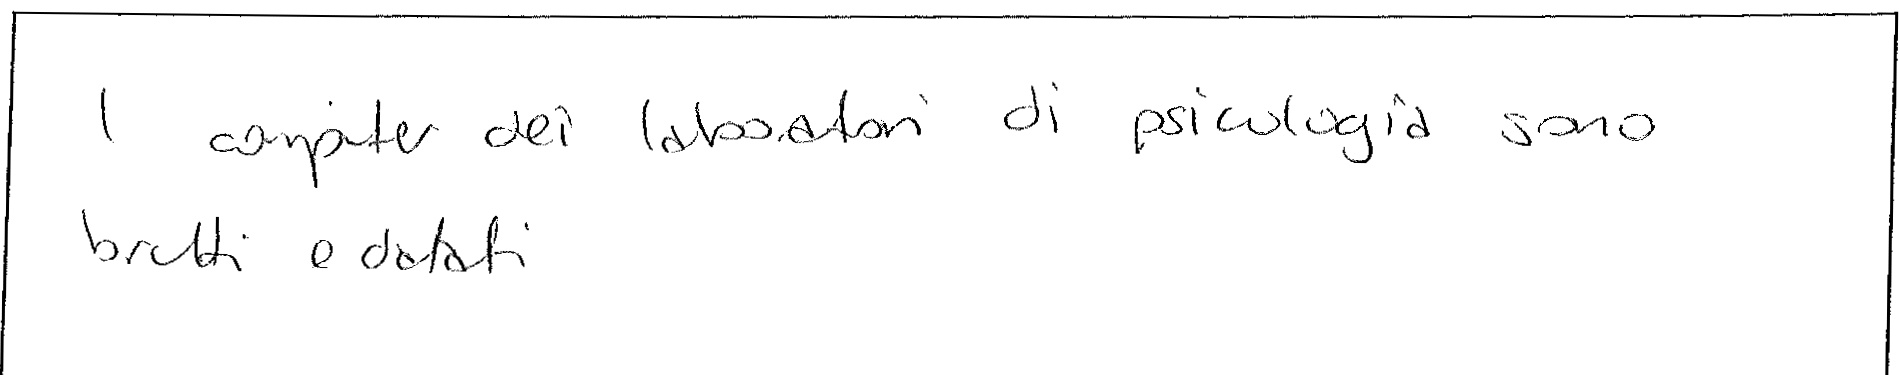 I computer dei laboratori di psicologia sono
brutti e datati